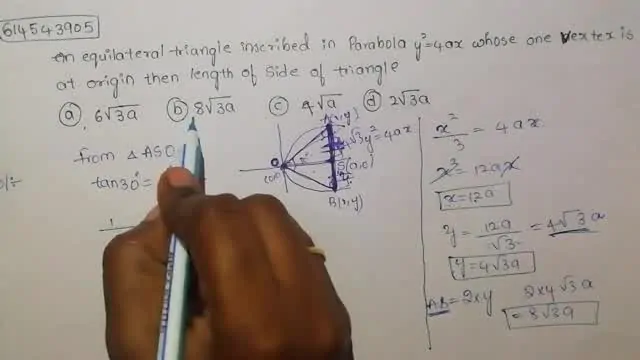 614543905
An equilateral triangle inscribed in Parabola y²=4ax whose one Vertex is
at origin then length of side of triangle
ⓐ 6√3a ⓑ 8√3a ⓒ 4√a ⓓ 2√3a
from △ ASO
tan30° =
1
A(x,y)
y²=4ax
O
(0,0)
S(a,0)
B(x,y)
x²/3 = 4ax
x² = 12ax
x=12a
y = 12a/√3 = 4√3a
y=4√3a
AB = 2×y 2×4√3a
= 8√3a